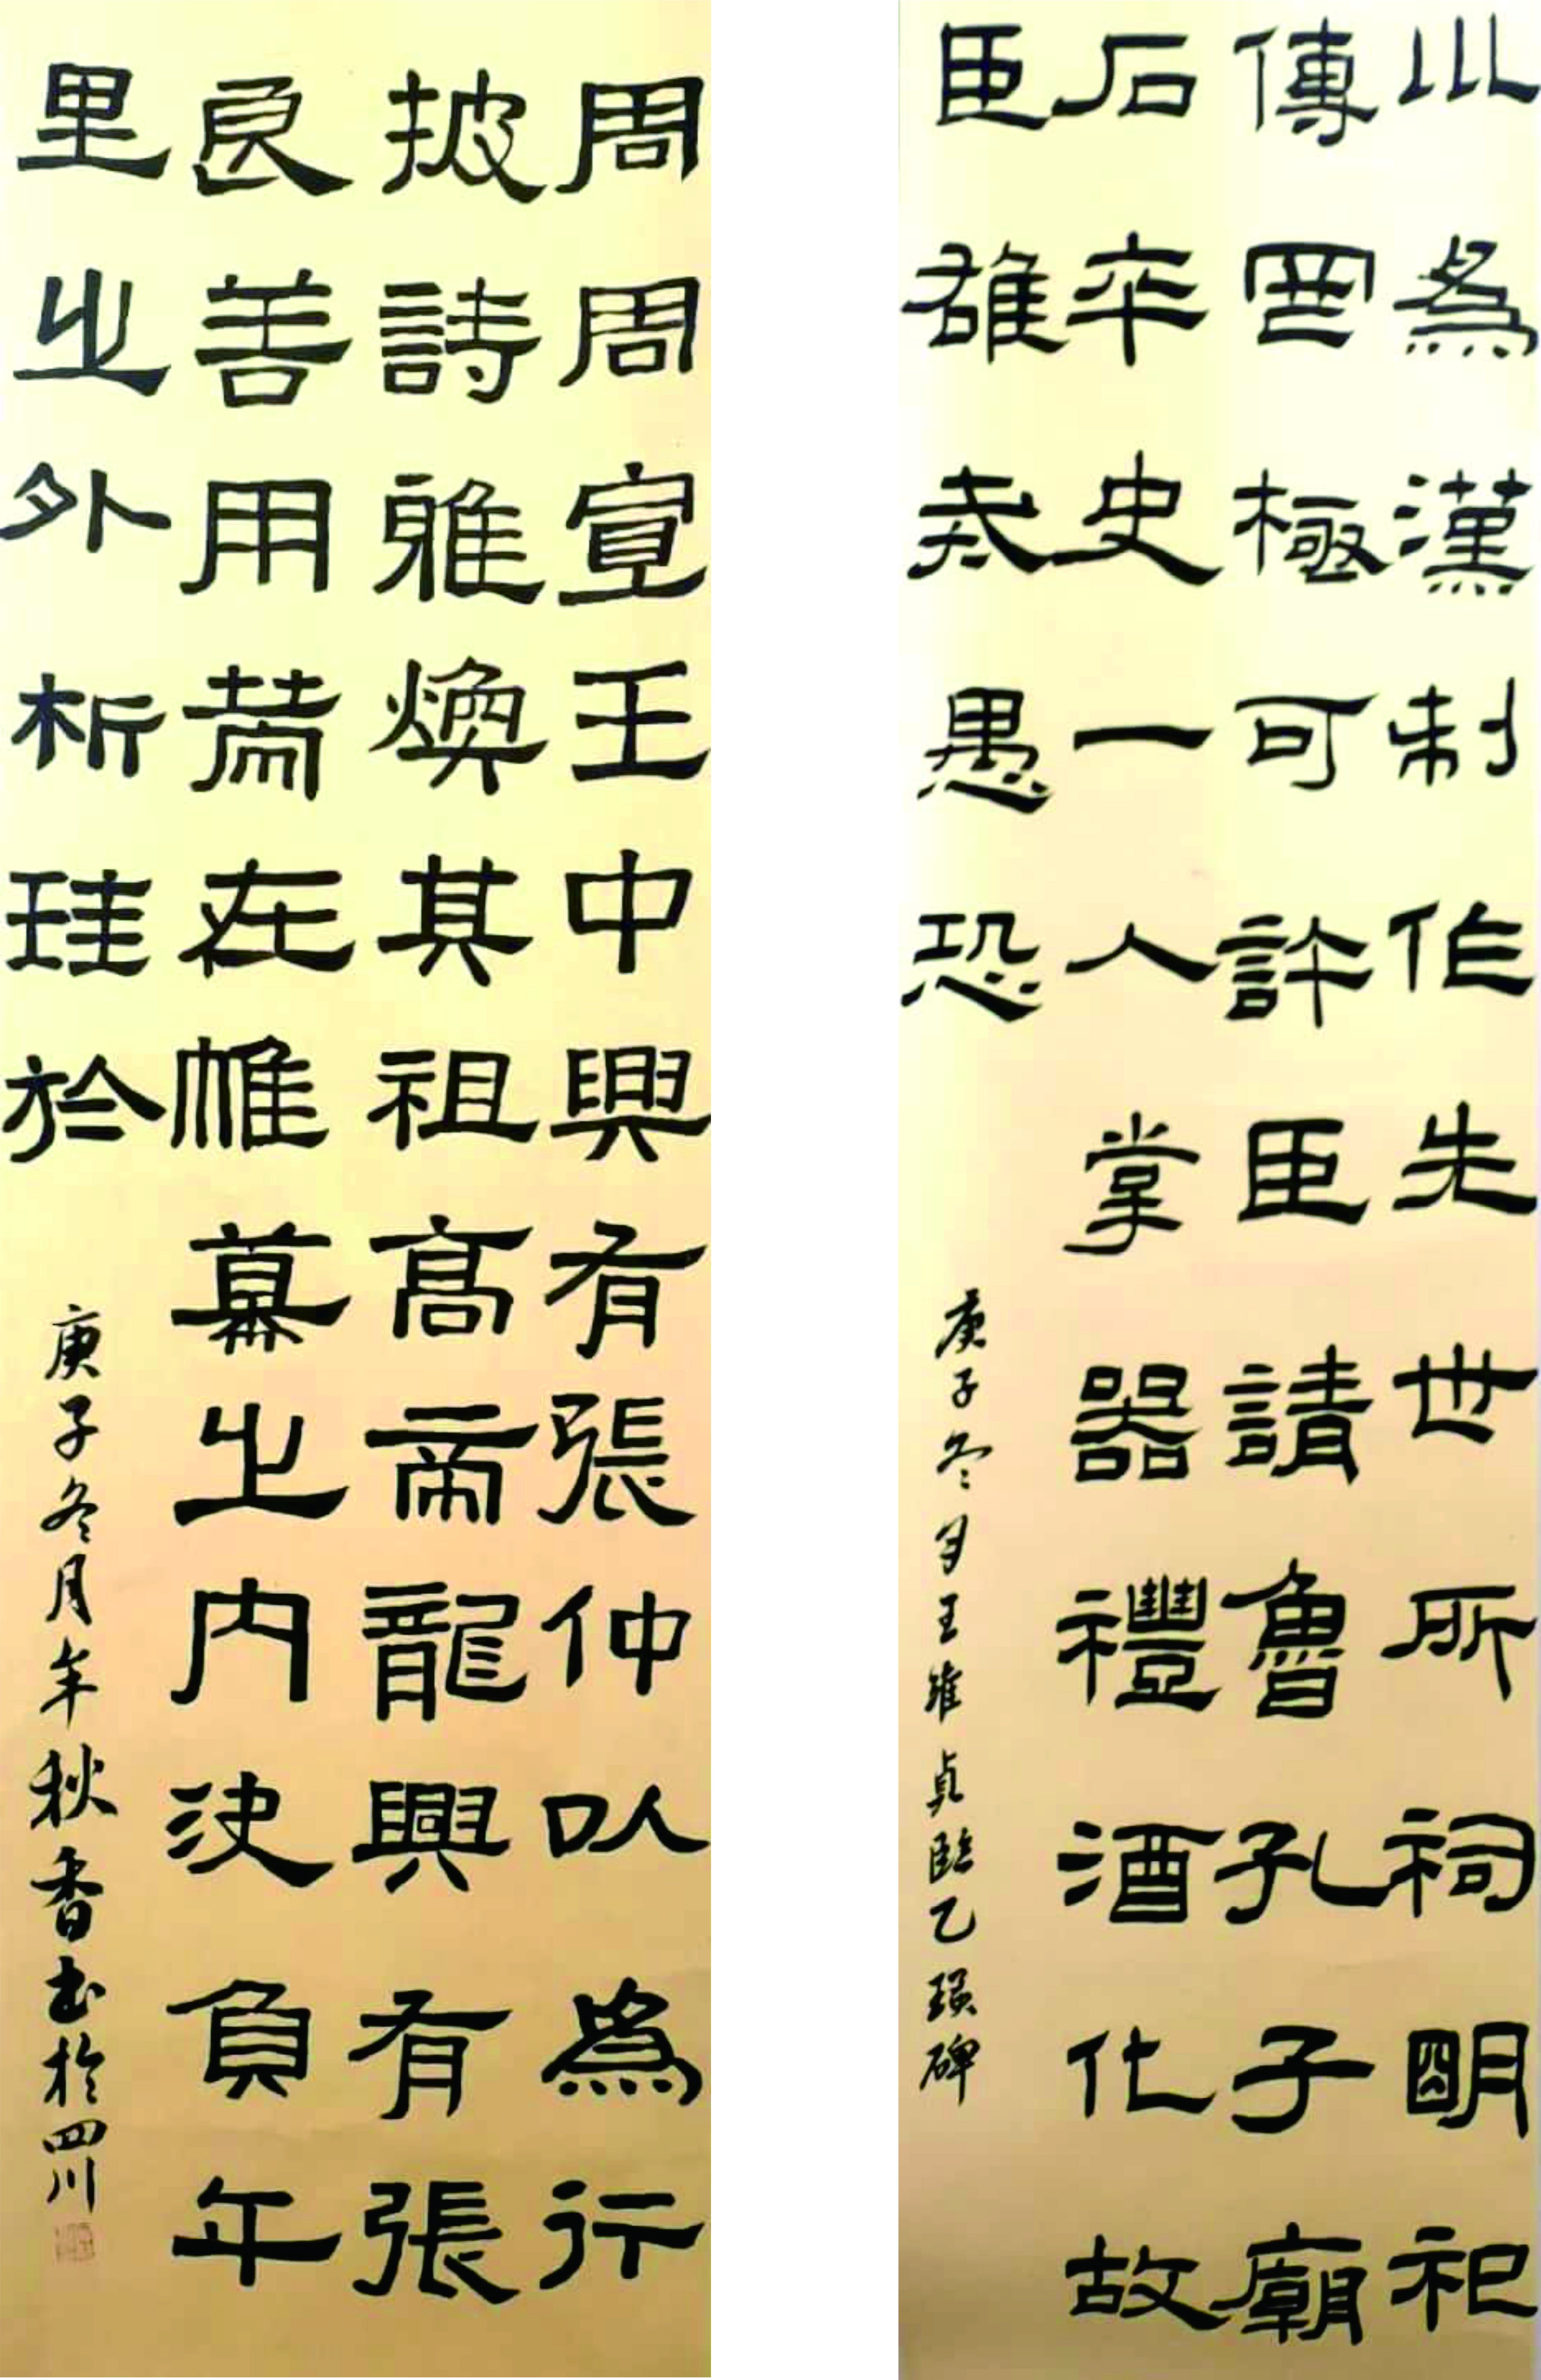 川為漢制作先世所祠明祀
傳罔極可許臣請魯孔子廟
石卒史一人掌器禮酒化故
臣雄戒愚恐
庚子冬月王維貞臨乙瑛碑
周周宣王中興有張仲以為行
披詩雅煥其祖高帝龍興有張
良善用策在帷幕之內決負午
里之外析珪於
庚子冬月年秋香書於四川